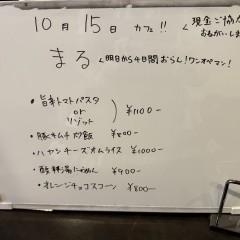 10月15日 カフェ!!
現金ご協力
おねがいしま
まる
明日から4日間おらん!ワンオペマン!
・旨辛トマトパスタ
or
リゾット
¥1100-
・豚キムチ炒飯 ¥800-
・ハヤシチーズオムライス ¥1000-
・酸辣湯にゅめん ¥900-
・オレンジチョコスコーン ¥800-